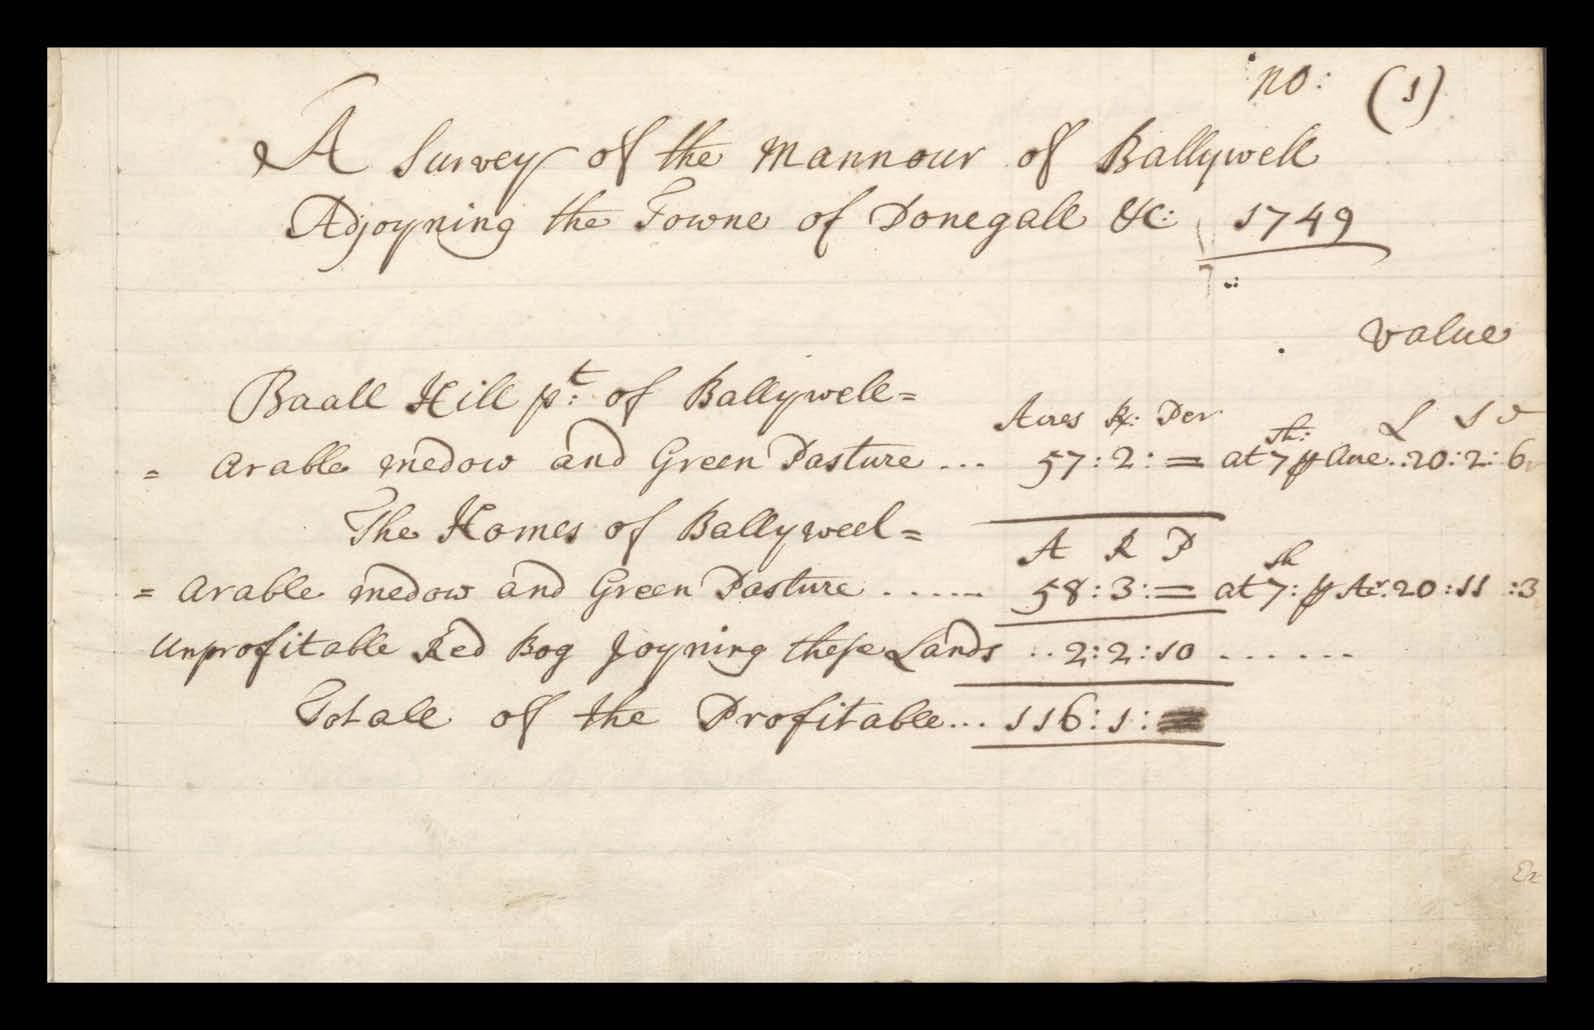 no: (1)
A Survey of the Mannour of Ballywell
Adjoyning the Towne of Donegall &c: 1749
value
Baall Hill pt: of Ballywell=
Acres R: Per L S D
= Arable medow and Green Pasture ... 57:2:= at 7 sh: p Acre..20:2:6
The Homes of Ballyweel=
A R P
= Arable medow and Green Pasture ...... 58:3:= at 7 sh: p Acr.20:11:3
Unprofitable Red Bog Joyning these Lands ..2:2:10 ......
Totall of the Profitable... 116:1:=
Ex